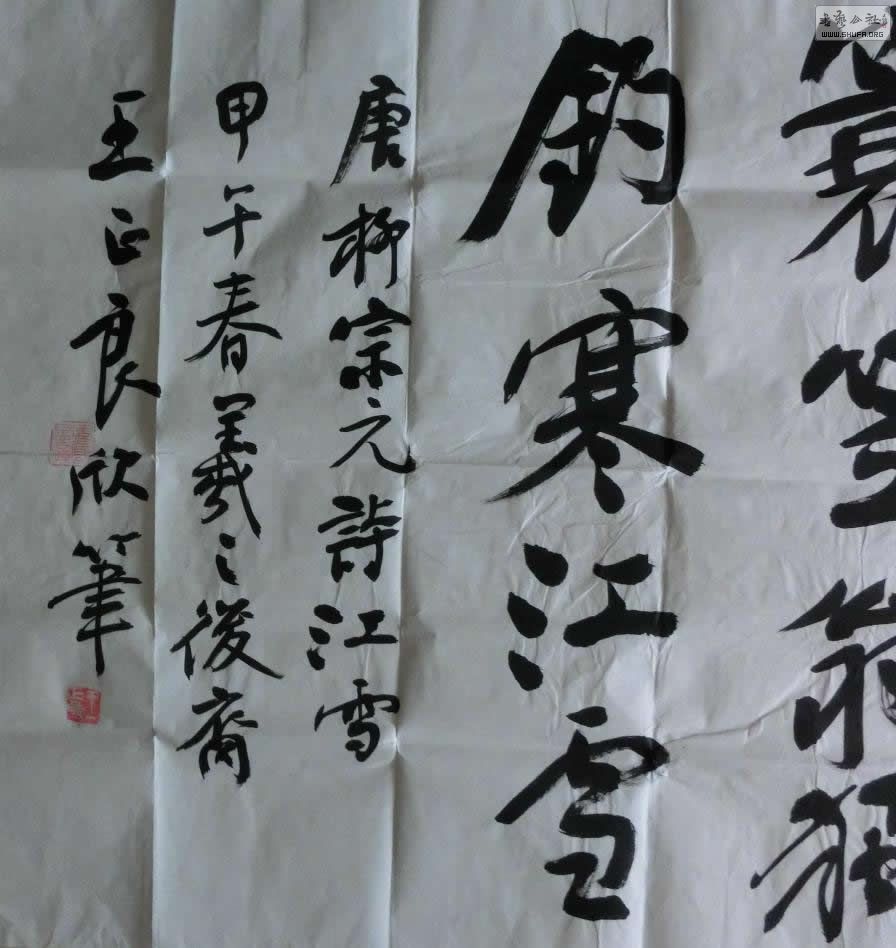 蓑笠翁獨
釣寒江雪
唐柳宗元詩江雪
甲午春羲之後裔
王正良欣筆
書藝公社
WWW.SHUFA.ORG